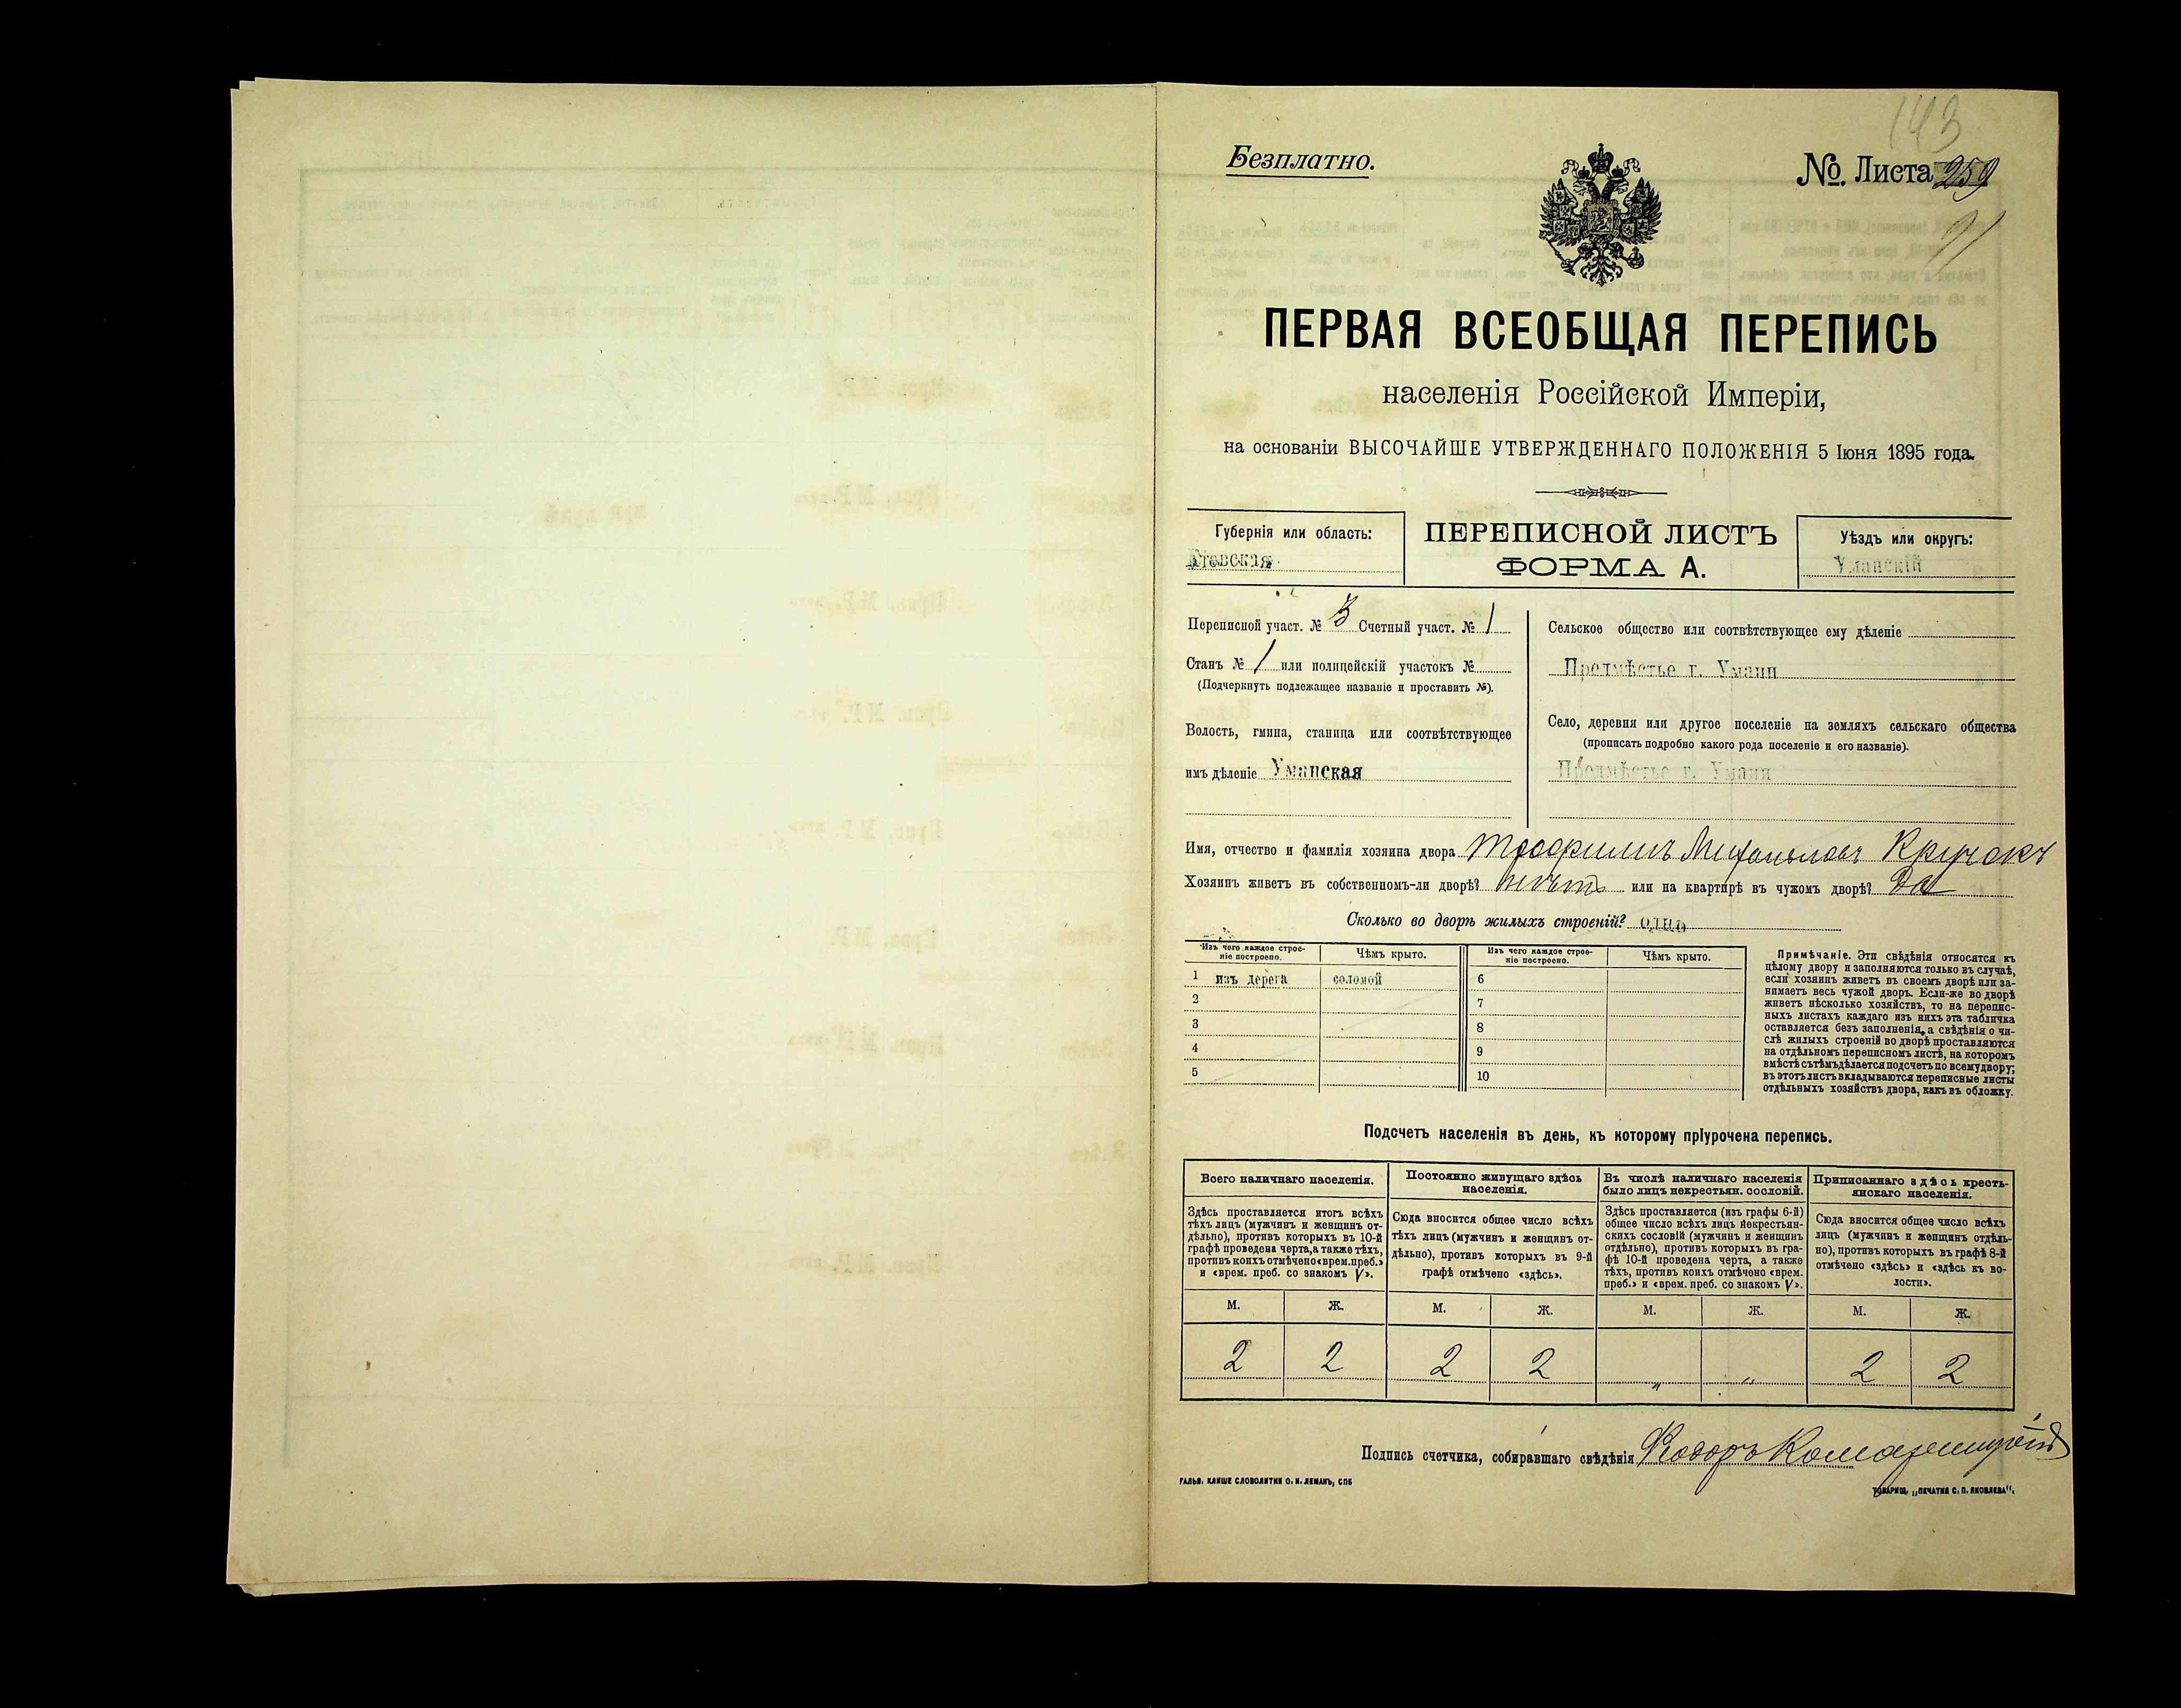 143
Безплатно.
№. Листа 259
91
ПЕРВАЯ ВСЕОБЩАЯ ПЕРЕПИСЬ
населенія Россійской Имперіи,
на основаніи ВЫСОЧАЙШЕ УТВЕРЖДЕННАГО ПОЛОЖЕНІЯ 5 Іюня 1895 года.
Губернія или область:
Кіевская
ПЕРЕПИСНОЙ ЛИСТЪ
ФОРМА А.
Уѣздъ или округъ:
Уманскій
Переписной участ. № 3 Счетный участ. № 1
Станъ № 1 или полицейскій участокъ №
(Подчеркнуть подлежащее названіе и проставить №).
Волость, гмина, станица или соотвѣтствующее
имъ дѣленіе Уманская
Сельское общество или соотвѣтствующее ему дѣленіе
Предмѣстье г. Умани
Село, деревня или другое поселеніе на земляхъ сельскаго общества
(прописать подробно какого рода поселеніе и его названіе).
Предмѣстье г. Умани
Имя, отчество и фамилія хозяина двора Трофимъ Михайловъ
Хозяинъ живетъ въ собственномъ-ли дворѣ? нѣтъ или на квартирѣ въ чужомъ дворѣ? Да
Сколько во дворѣ жилыхъ строеній? одно
Изъ чего каждое строе-
ніе построено.
Чѣмъ крыто.
Изъ чего каждое строе-
ніе построено.
Чѣмъ крыто.
1 изъ дерева соломой 6
2 7
3 8
4 9
5 10
Примѣчаніе. Эти свѣдѣнія относятся къ
цѣлому двору и заполняются только въ случаѣ,
если хозяинъ живетъ въ своемъ дворѣ или за-
нимаетъ весь чужой дворъ. Если-же во дворѣ
живетъ нѣсколько хозяйствъ, то на перепис-
ныхъ листахъ каждаго изъ нихъ эта табличка
оставляется безъ заполненія, а свѣдѣнія о чи-
слѣ жилыхъ строеній во дворѣ проставляются
на отдѣльномъ переписномъ листѣ, на которомъ
вмѣстѣ съ тѣмъ дѣлается подсчетъ по всему двору;
въ этотъ листъ вкладываются переписные листы
отдѣльныхъ хозяйствъ двора, какъ въ обложку.
Подсчетъ населенія въ день, къ которому пріурочена перепись.
Всего наличнаго населенія.
Здѣсь проставляется итогъ всѣхъ
тѣхъ лицъ (мужчинъ и женщинъ от-
дѣльно), противъ которыхъ въ 10-й
графѣ проведена черта, а также тѣхъ,
противъ коихъ отмѣчено «врем. преб.»
и «врем. преб. со знакомъ V».
Постоянно живущаго здѣсь
населенія.
Сюда вносится общее число всѣхъ
тѣхъ лицъ (мужчинъ и женщинъ от-
дѣльно), противъ которыхъ въ 9-й
графѣ отмѣчено «здѣсь».
Въ числѣ наличнаго населенія
было лицъ некрестьян. сословій.
Здѣсь проставляется (изъ графы 6-й)
общее число всѣхъ лицъ некрестьян-
скихъ сословій (мужчинъ и женщинъ
отдѣльно), противъ которыхъ въ гра-
фѣ 10-й проведена черта, а также
тѣхъ, противъ коихъ отмѣчено «врем.
преб.» и «врем. преб. со знакомъ V».
Приписаннаго здѣсь кресть-
янскаго населенія.
Сюда вносится общее число всѣхъ
лицъ (мужчинъ и женщинъ отдѣль-
но), противъ которыхъ въ графѣ 8-й
отмѣчено «здѣсь» и «здѣсь къ во-
лости».
М. Ж. М. Ж. М. Ж. М. Ж.
2 2 2 2 " " 2 2
Подпись счетчика, собиравшаго свѣдѣнія Ѳеодоръ
ГАЛЬВ. КЛИШЕ СЛОВОЛИТНИ О. И. ЛЕМАНЪ, СПБ
ТОВАРИЩ. „ПЕЧАТНЯ С. П. ЯКОВЛЕВА".